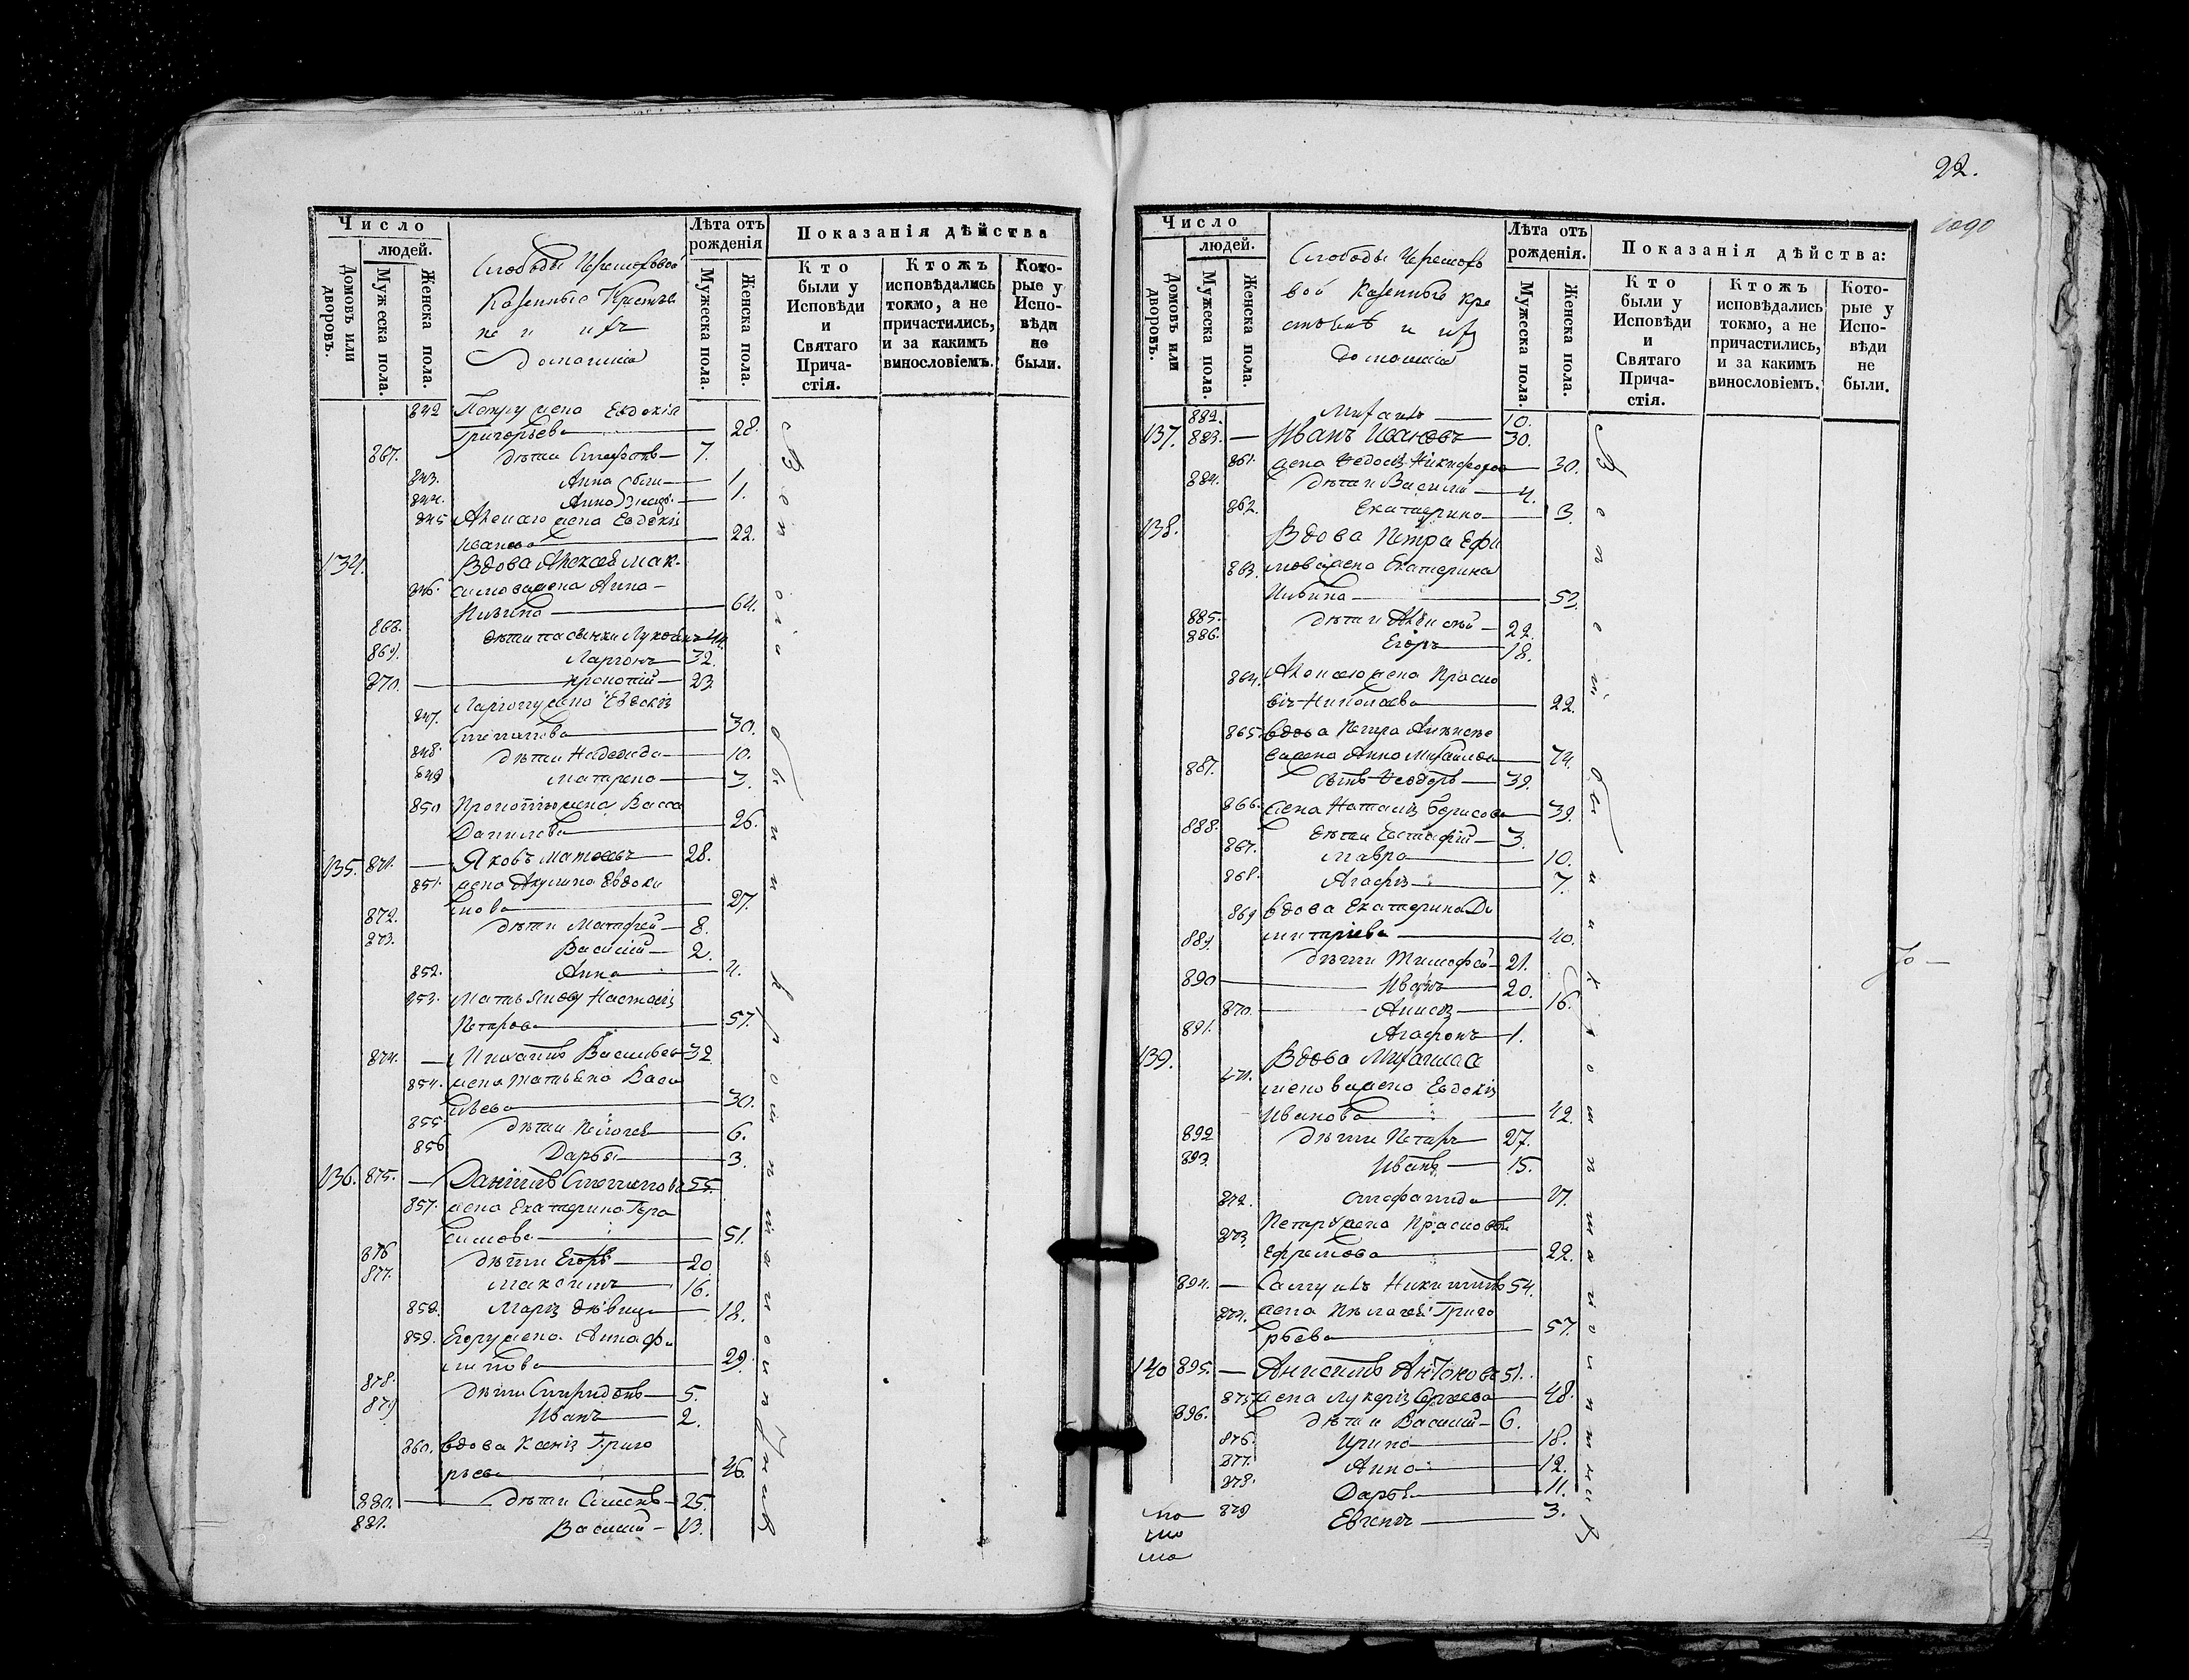 22.
1090
Число
людей.
Домовъ или дворовъ.
Мужеска пола.
Женска пола.
Слободы Черемховой
Казенные Крестья
не и ихъ
Домашніе
Лѣта отъ рожденія
Мужеска пола.
Женска пола.
Показанія дѣйства
Кто были у Исповѣди и Святаго Прича-стія.
Ктожъ исповѣдались токмо, а не причастились, и за какимъ винословіемъ.
Кото-рые у Испо-вѣди не были.
842 Петру жена Евдокія
Григорьева 28.
867. дѣти Стефанъ 7.
843. Анна 1.
844. Анна 1.
845 жена Евдокія
Иванова 22.
134. Вдова Алексѣя Мак-
846. симова жена Анна
64.
868. дѣти пасынки 44.
869. Ларіонъ 32.
870. Прокопій 23.
847. Ларіону жена Евдокія
Степанова 30.
848. дѣти Надежда 10.
849 Матрена 3.
850 Прокопію жена Васса
Данилова 26.
135. 871. Яковъ Матвѣевъ 28.
851. жена Акулина Евдоки
мова 27.
872. дѣти Матфей 8.
873. Василій 2.
852. Анна 4.
853. Мать Якову Настасія
Петрова 57.
874. Игнатъ Васильевъ 32
854. жена Татьяна Васи
льева 30.
855. дѣти Пелагея 6.
856 Дарья 3.
136. 875. Даніилъ Степановъ 55.
857. жена Екатерина Гера
симова 51.
876 дѣти Егоръ 20
877. Максимъ 16.
858. Марія дѣвица 18.
859. Егору жена Анна Фи
липова 29.
878. дѣти Спиридонъ 5.
879 Иванъ 2.
860. вдова Ксенія Григо
рьева 46.
880. дѣти Семенъ 25.
881. Василій 13.
Всеи
были
кромѣ
Число
людей.
Домовъ или дворовъ.
Мужеска пола.
Женска пола.
Слободы Черемхо
вой Казенные кре
стьянѣ и ихъ
домашніе
Лѣта отъ рожденія.
Мужеска пола.
Женска пола.
Показанія дѣйства:
Кто были у Исповѣди и Святаго Прича-стія.
Ктожъ исповѣдались токмо, а не причастились, и за какимъ винословіемъ.
Кото-рые у Испо-вѣди не были.
882. Михаилъ 10.
137. 883. Иванъ Ивановъ 30.
861. жена Ѳедосія Никифорова 30.
884. дѣти Василій 4.
862. Екатерина 3.
138. Вдова Петра Ефи
863. мова жена Екатерина
53.
885. дѣти Алексѣй 22.
886. Егоръ 18.
864. Алексею жена Праско
вія Николаева 22.
865. вдова Петра Алексѣе
ва жена Анна Михайлова 74.
887. сынъ Ѳеодоръ 39.
866. жена Наталія Борисова 39.
888. дѣти Евстафій 3.
867. Мавра 10.
868. Агафія 7.
869 вдова Екатерина Ди
митріева 40.
889. дѣти Тимофей 21.
890 Иванъ 20.
870. Анисія 16.
891. Агафонъ 1.
139. Вдова Михаила Се
871. менова жена Евдокія
Иванова 42.
892 дѣти Петръ 27.
893. Иванъ 15.
872. Степанида 17.
873. Петру жена Прасковья
Ефремова 22.
894. Самуилъ Никитинъ 54.
874. жена Пелагея Григо
рьева 57.
140 895. Анисимъ Антоновъ 51.
875. жена Лукерія Сергеева 48.
896. дѣти Василій 6.
876. Ирина 18.
877. Анна 12.
878. Дарья 11.
879 Евгенія 3.